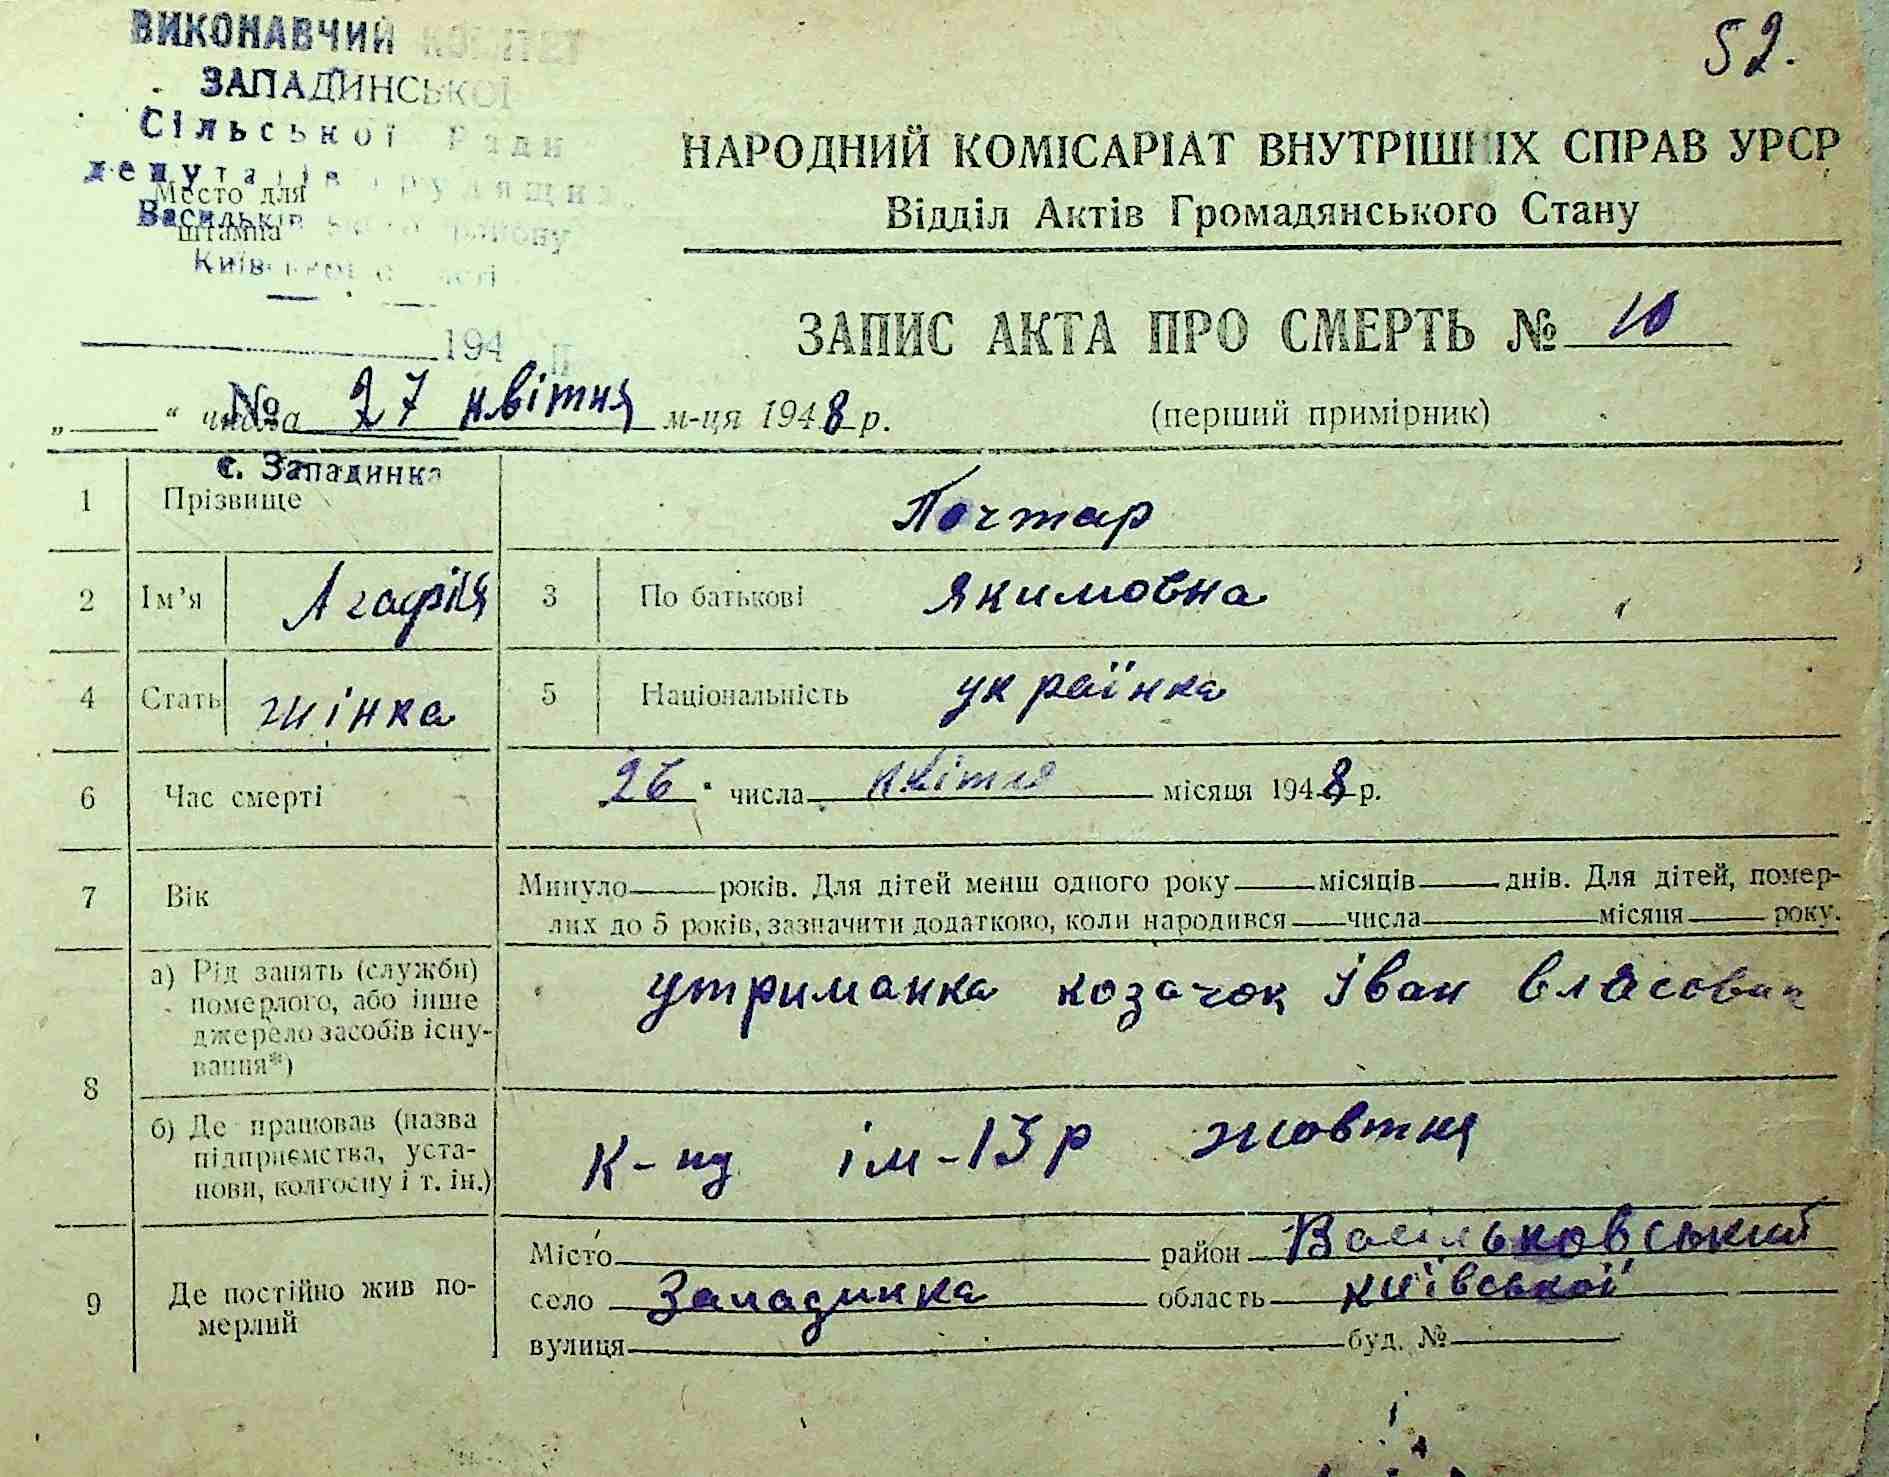 52.
ВИКОНАВЧИЙ КОМІТЕТ
ЗАПАДИНСЬКОЇ
Сільської Ради
депутатів трудящих
Васильківського району
Київської області
Место для
штампа
НАРОДНИЙ КОМІСАРІАТ ВНУТРІШНІХ СПРАВ УРСР
Відділ Актів Громадянського Стану
194
ЗАПИС АКТА ПРО СМЕРТЬ № 10
№
„ “ числа 27 квітня м-ця 1948 р.
(перший примірник)
с. Западинка
1 Прізвище Почтар
2 Ім’я Агафія 3 По батькові Якимовна
4 Стать жінка 5 Національність українка
6 Час смерті 26 числа квітня місяця 1948 р.
7 Вік Минуло років. Для дітей менш одного року місяців днів. Для дітей, помер-
лих до 5 років, зазначити додатково, коли народився числа місяця року.
8 а) Рід занять (служби)
померлого, або інше
джерело засобів існу-
вання*)
утриманка козачок Іван власович
б) Де працював (назва
підприємства, уста-
нови, колгоспу і т. ін.)
К-пу ім-13р жовтня
9 Де постійно жив по-
мерлий
Місто район Васільковський
село Западинка область київської
вулиця буд. №